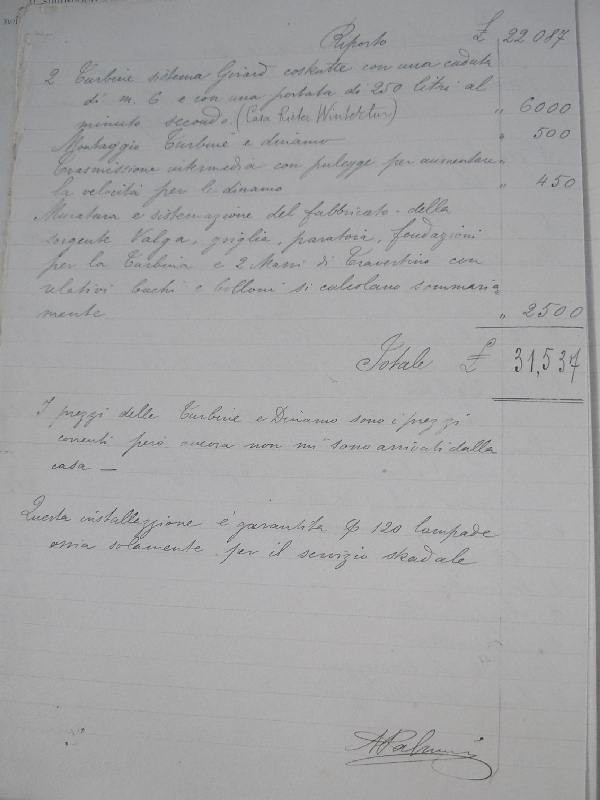 Riporto £ 22087
2 Turbine sistema Girard costrutte con una caduta
di m. 6 e con una portata di 250 litri al
minuto secondo. (Casa Rieter Winterthur) " 6000
Montaggio Turbine e dinamo " 500
Trasmissione intermedia con pulegge per aumentare "
la velocità per le dinamo " 450
Muratura e sistemazione del fabbricato della
sorgente Valga, griglia, paratoia, fondazioni
per la Turbina e 2 Massi di Travertino con
relativi buchi e bolloni si calcolano sommaria=
mente " 2500
Totale £ 31,537
I prezzi delle Turbine e Dinamo sono i prezzi
correnti però ancora non mi sono arrivati dalla
casa —
Questa installazzione è garantita p 120 lampade
ossia solamente per il servizio stradale